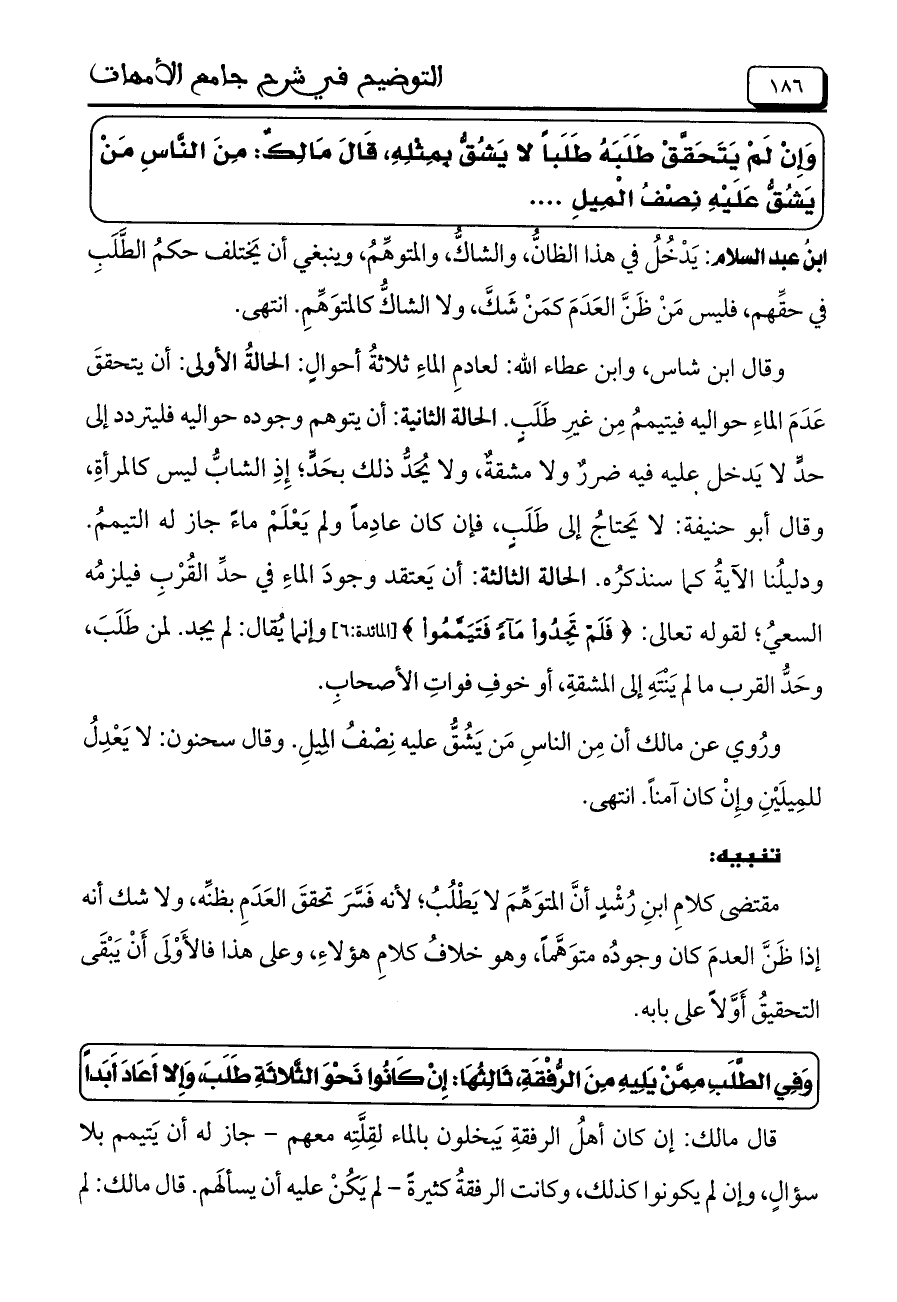 التوضيح في شرح جامع الأمهات
١٨٦
وَإِنْ لَمْ يَتَحَقَّقْ طَلَبَهُ طَلَباً لا يَشُقُّ بِمِثْلِهِ، قَالَ مَالِكٌ: مِنَ النَّاسِ مَنْ
يَشُقُّ عَلَيْهِ نِصْفُ الْمِيلِ ....
ابنُ عبد السلام: يَدْخُلُ في هذا الظانُّ، والشاكُّ، والمتوهِّمُ، وينبغي أن يَختلف حكمُ الطَّلَبِ
في حقِّهم، فليس مَنْ ظَنَّ العَدَمَ كمَنْ شَكَّ، ولا الشاكُّ كالمتوَهِّمِ. انتهى.
وقال ابن شاس، وابن عطاء الله: لعادمِ الماءِ ثلاثةُ أحوالٍ: الحالةُ الأولى: أن يتحققَ
عَدَمَ الماءِ حواليه فيتيممُ مِن غيرِ طَلَبٍ. الحالة الثانية: أن يتوهم وجوده حواليه فليتردد إلى
حدٍّ لا يَدخل عليه فيه ضررٌ ولا مشقةٌ، ولا يُحَدُّ ذلك بحَدٍّ؛ إذِ الشابُّ ليس كالمرأةِ،
وقال أبو حنيفة: لا يَحتاجُ إلى طَلَبٍ، فإن كان عادِماً ولم يَعْلَمْ ماءً جاز له التيممُ.
ودليلُنا الآيةُ كما سنذكرُه. الحالة الثالثة: أن يَعتقد وجودَ الماءِ في حدِّ القُرْبِ فيلزمُه
السعيُ؛ لقوله تعالى: ﴿ فَلَمْ تَجِدُواْ مَآءً فَتَيَمَّمُواْ ﴾ [المائدة:٦] وإنما يُقال: لم يجد. لمن طَلَبَ،
وحَدُّ القرب ما لم يَنْتَهِ إلى المشقةِ، أو خوفِ فواتِ الأصحابِ.
ورُوي عن مالك أن مِن الناسِ مَن يَشُقُّ عليه نِصْفُ المِيلِ. وقال سحنون: لا يَعْدِلُ
للمِيلَيْنِ وإنْ كان آمناً. انتهى.
تنبيه:
مقتضى كلامِ ابنِ رُشْدٍ أنَّ المتوَهِّمَ لا يَطْلُبُ؛ لأنه فَسَّرَ تحققَ العَدَمِ بظنِّه، ولا شك أنه
إذا ظَنَّ العدمَ كان وجودُه متوَهَّماً، وهو خلافُ كلامِ هؤلاءِ، وعلى هذا فالأَوْلى أَنْ يَبْقَى
التحقيقُ أَوَّلاً على بابه.
وَفِي الطَّلَبِ مِمَّنْ يَلِيهِ مِنَ الرُّفْقَةِ، ثَالِثُهَا: إِنْ كَانُوا نَحْوَ الثَّلاثَةِ طَلَبَ، وَإِلا أَعَادَ أَبَداً
قال مالك: إن كان أهلُ الرفقةِ يَبخلون بالماء لقِلَّتِه معهم - جاز له أن يَتيمم بلا
سؤالٍ، وإن لم يكونوا كذلك، وكانت الرفقةُ كثيرةً - لم يَكُنْ عليه أن يسألَهم. قال مالك: لم